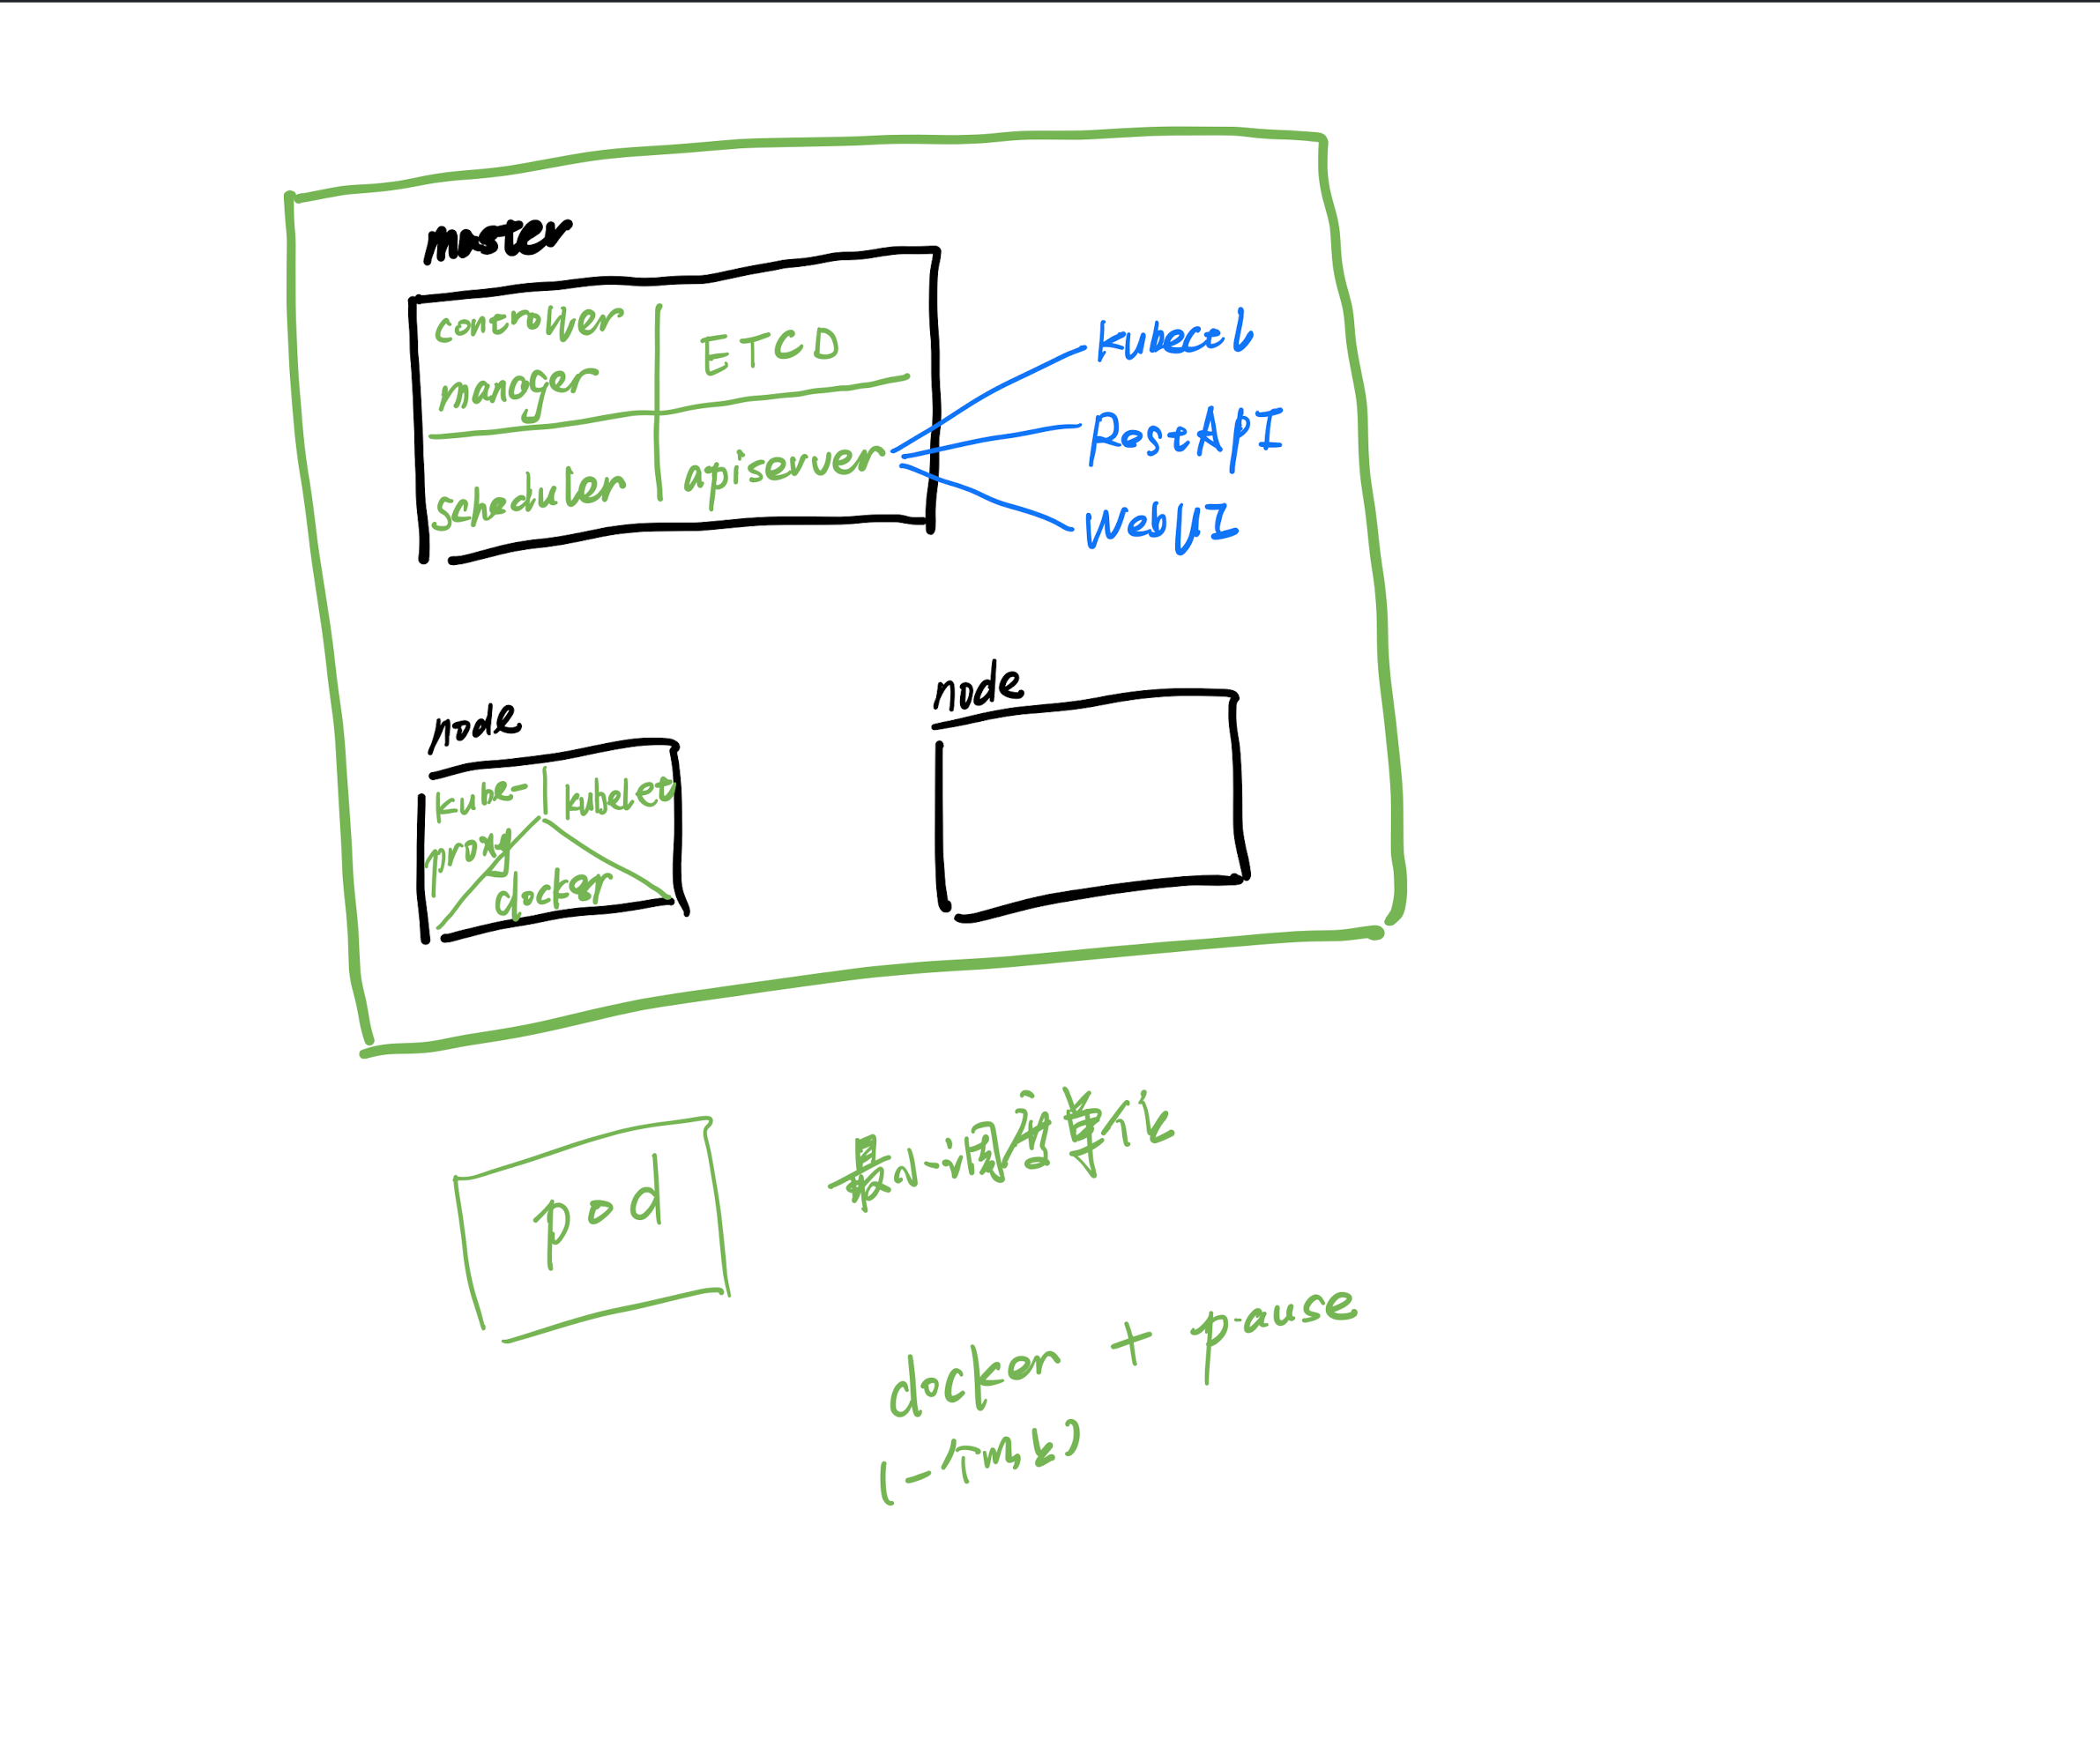 master
controller
manager
ETCD
scheduler
apiserver
kubectl
RestAPI
WebUI
node
kube-
proxy
kubelet
docker
node
pod
最小调度单位
docker + pause